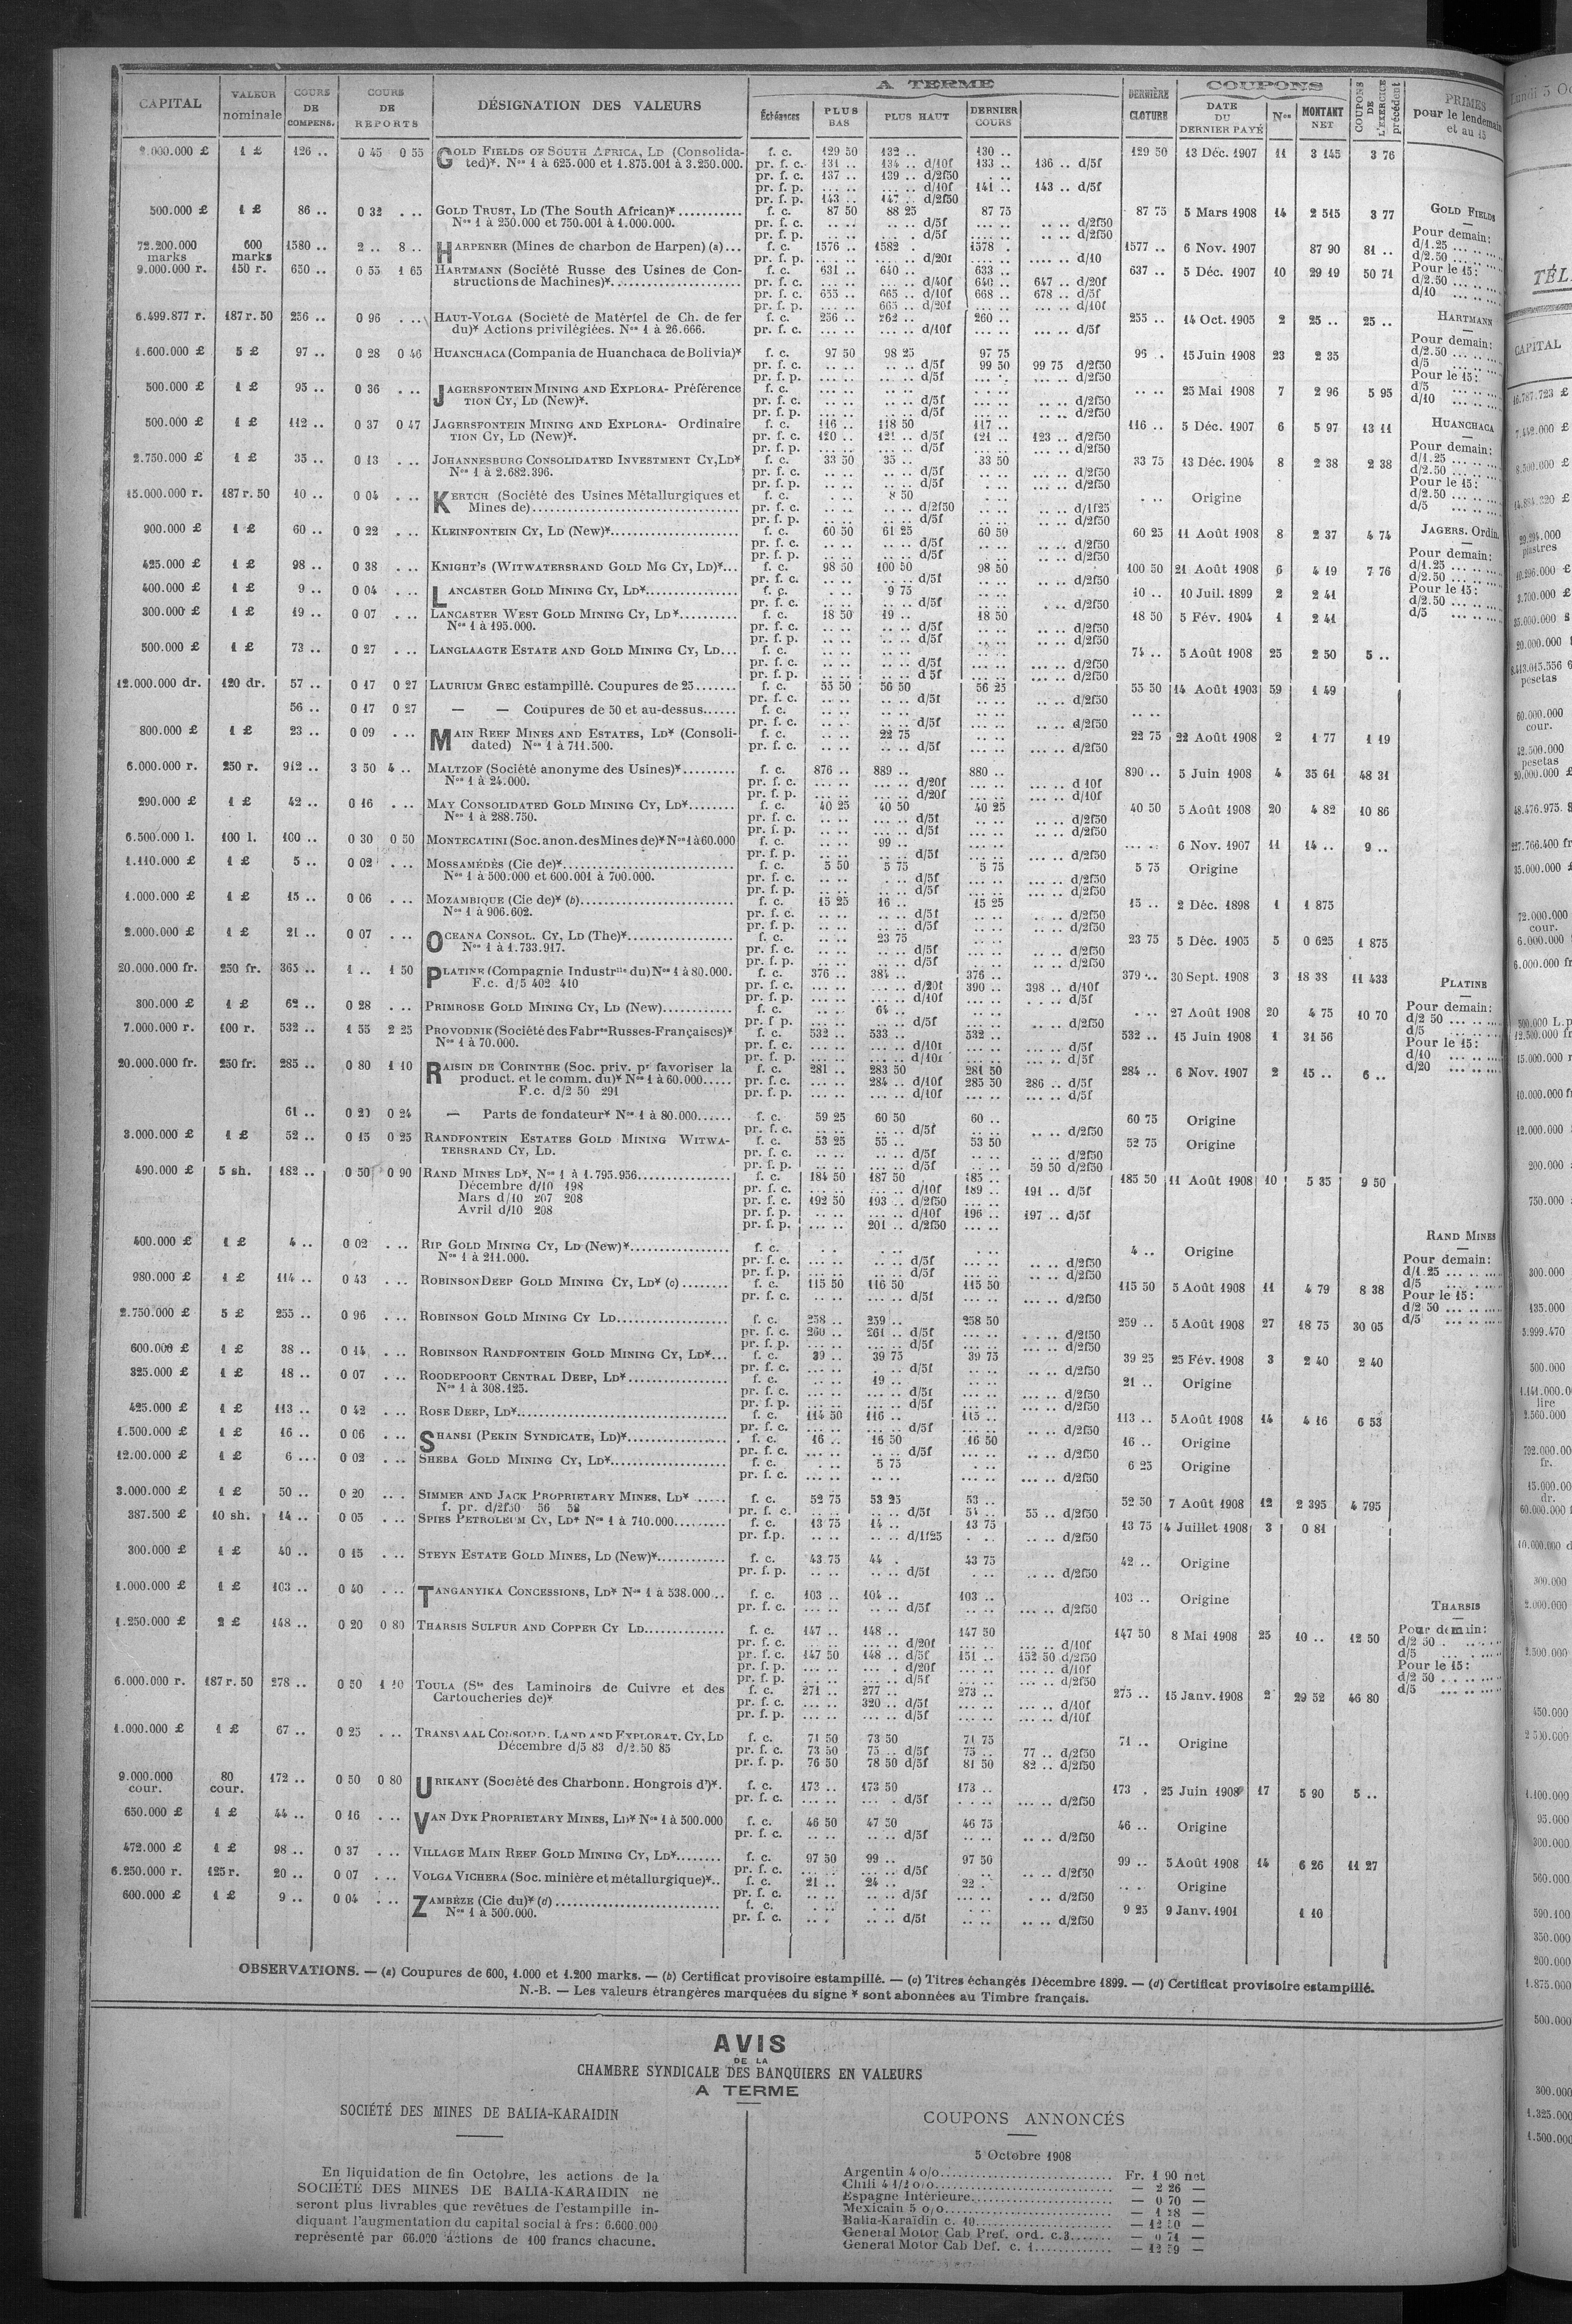 A TERME
COUPONS
CAPITAL
VALEUR nominale
COURS DE COMPENS.
COURS DE REPORTS
DÉSIGNATION DES VALEURS
Échéances
PLUS BAS
PLUS HAUT
DERNIER COURS
DERNIÈRE CLOTURE
DATE DU DERNIER PAYÉ
Nos
MONTANT NET
COUPONS DE L'EXERCICE précédent
PRIMES pour le lendemain et au 15
1 £ 126 .. 0 45 0 55 GOLD FIELDS OF SOUTH AFRICA, LD (Consolida- f. c. 129 50 132 .. 130 .. 129 50 13 Déc. 1907 11 3 145 3 76
ted)*. Nos 1 à 625.000 et 1.875.001 à 3.250.000. pr. f. c. 131 .. 134 .. d/10f 133 .. 136 .. d/5f
pr. f. c. 137 .. 139 .. d/2f50
pr. f. p. ... .. ... .. d/10f 141 .. 143 .. d/5f
pr. f. p. 143 .. 147 .. d/2f50
500.000 £ 1 £ 86 .. 0 32 . .. GOLD TRUST, LD (The South African)* f. c. 87 50 88 25 87 75 87 75 5 Mars 1908 14 2 515 3 77 GOLD FIELDS
Nos 1 à 250.000 et 750.001 à 1.000.000. pr. f. c. d/5f d/2f50
pr. f. p. d/5f d/2f50 Pour demain:
72.200.000 marks 600 marks 1580 .. 2 .. 8 .. HARPENER (Mines de charbon de Harpen) (a)... f. c. 1576 .. 1582 . 1578 . 1577 .. 6 Nov. 1907 87 90 81 .. d/1.25
pr. f. p. d/20f d/10 d/2.50
9.000.000 r. 150 r. 650 .. 0 55 1 65 HARTMANN (Société Russe des Usines de Con- f. c. 631 .. 640 .. 633 .. 637 .. 5 Déc. 1907 10 29 19 50 71 Pour le 15:
structions de Machines)* pr. f. c. d/40f 640 .. 647 .. d/20f d/2.50
pr. f. c. 655 .. 665 .. d/10f 668 .. 678 .. d/5f d/10
pr. f. p. 665 .. d/20f d/10f
6.499.877 r. 187 r. 50 256 .. 0 96 . .. HAUT-VOLGA (Société de Matériel de Ch. de fer f. c. 256 .. 262 .. 260 .. 255 .. 14 Oct. 1905 2 25 .. 25 .. HARTMANN
du)* Actions privilégiées. Nos 1 à 26.666. pr. f. c. d/10f d/5f
1.600.000 £ 5 £ 97 .. 0 28 0 46 HUANCHACA (Compania de Huanchaca de Bolivia)* f. c. 97 50 98 25 97 75 96 . 15 Juin 1908 23 2 35 Pour demain: d/2.50
pr. f. c. d/5f 99 50 99 75 d/2f50 d/5
pr. f. p. d/5f d/2f50 Pour le 15:
500.000 £ 1 £ 95 .. 0 36 . .. JAGERSFONTEIN MINING AND EXPLORA- Préférence f. c. 25 Mai 1908 7 2 96 5 95 d/5
TION CY, LD (New)*. pr. f. c. d/5f d/2f50 d/10
pr. f. p. d/5f d/2f50
500.000 £ 1 £ 112 .. 0 37 0 47 JAGERSFONTEIN MINING AND EXPLORA- Ordinaire f. c. 116 .. 118 50 117 .. 116 .. 5 Déc. 1907 6 5 97 13 11 HUANCHACA
TION CY, LD (New)*. pr. f. c. 120 .. 121 .. d/5f 121 .. 123 .. d/2f50
pr. f. p. d/5f d/2f50 Pour demain:
2.750.000 £ 1 £ 35 .. 0 13 . .. JOHANNESBURG CONSOLIDATED INVESTMENT CY, LD* f. c. 33 50 35 .. 33 50 33 75 13 Déc. 1904 8 2 38 2 38 d/1.25
Nos 1 à 2.682.396. pr. f. c. d/5f d/2f50 d/2.50
pr. f. p. d/5f d/2f50 Pour le 15:
15.000.000 r. 187 r. 50 10 .. 0 04 . .. KERTCH (Société des Usines Métallurgiques et f. c. 8 50 Origine d/2.50
Mines de) pr. f. c. d/2f50 d/1f25 d/5
pr. f. p. d/5f d/2f50
900.000 £ 1 £ 60 .. 0 22 . .. KLEINFONTEIN CY, LD (New)* f. c. 60 50 61 25 60 50 60 25 11 Août 1908 8 2 37 4 74 JAGERS. Ordin.
pr. f. c. d/5f d/2f50
pr. f. p. d/5f d/2f50 Pour demain:
425.000 £ 1 £ 98 .. 0 38 . .. KNIGHT'S (WITWATERSRAND GOLD MG CY, LD)*... f. c. 98 50 100 50 98 50 100 50 21 Août 1908 6 4 19 7 76 d/1.25
pr. f. c. d/5f d/2f50 d/2.50
400.000 £ 1 £ 9 .. 0 04 . .. LANCASTER GOLD MINING CY, LD* f. c. 9 75 10 .. 10 Juil. 1899 2 2 41 Pour le 15:
pr. f. c. d/5f d/2f50 d/2.50
300.000 £ 1 £ 19 .. 0 07 . .. LANCASTER WEST GOLD MINING CY, LD* f. c. 18 50 19 .. 18 50 18 50 5 Fév. 1904 1 2 41 d/5
Nos 1 à 195.000. pr. f. c. d/5f d/2f50
pr. f. p. d/5f d/2f50
500.000 £ 1 £ 73 .. 0 27 . .. LANGLAAGTE ESTATE AND GOLD MINING CY, LD... f. c. 74 .. 5 Août 1908 25 2 50 5 ..
pr. f. c. d/5f d/2f50
pr. f. p. d 5f d/2f50
12.000.000 dr. 120 dr. 57 .. 0 17 0 27 LAURIUM GREC estampillé. Coupures de 25 f. c. 55 50 56 50 56 25 55 50 14 Août 1903 59 1 49
pr. f. c. d/5f d/2f50
56 .. 0 17 0 27 — — Coupures de 50 et au-dessus f. c.
pr. f. c. d/5f d/2f50
800.000 £ 1 £ 23 .. 0 09 . .. MAIN REEF MINES AND ESTATES, LD* (Consoli- f. c. 22 75 22 75 22 Août 1908 2 1 77 1 19
dated) Nos 1 à 711.500. pr. f. c. d/5f d/2f50
6.000.000 r. 250 r. 912 .. 3 50 4 .. MALTZOF (Société anonyme des Usines)* f. c. 876 .. 889 .. 880 .. 890 .. 5 Juin 1908 4 35 61 48 31
Nos 1 à 24.000. pr. f. c. d/20f d 10f
pr. f. p. d/20f d/10f
290.000 £ 1 £ 42 .. 0 16 . .. MAY CONSOLIDATED GOLD MINING CY, LD* f. c. 40 25 40 50 40 25 40 50 5 Août 1908 20 4 82 10 86
Nos 1 à 288.750. pr. f. c. d/5f d/2f50
pr. f. p. d/5f d/2f50
6.500.000 l. 100 l. 100 .. 0 30 0 50 MONTECATINI (Soc. anon. des Mines de)* Nos 1 à 60.000 f. c. 99 .. 6 Nov. 1907 11 14 .. 9 ..
pr. f. p. d/5f d/2f50
1.110.000 £ 1 £ 5 .. 0 02 . .. MOSSAMÉDÈS (Cie de)* f. c. 5 50 5 75 5 75 5 75 Origine
Nos 1 à 500.000 et 600.001 à 700.000. pr. f. c. d/5f d/2f50
pr. f. p. d/5f d/2f50
1.000.000 £ 1 £ 15 .. 0 06 . .. MOZAMBIQUE (Cie de)* (b) f. c. 15 25 16 .. 15 25 15 .. 2 Déc. 1898 1 1 875
Nos 1 à 906.602. pr. f. c. d/5f d/2f50
pr. f. p. d/5f d/2f50
2.000.000 £ 1 £ 21 .. 0 07 . .. OCEANA CONSOL. CY, LD (The)* f. c. 23 75 23 75 5 Déc. 1905 5 0 625 1 875
Nos 1 à 1.733.917. pr. f. c. d/5f d/2f50
pr. f. p. d/5f d/2f50
20.000.000 fr. 250 fr. 365 .. 1 .. 1 50 PLATINE (Compagnie Industrlle du) Nos 1 à 80.000. f. c. 376 .. 384 .. 376 .. 379 .. 30 Sept. 1908 3 18 38 11 433 PLATINE
F.c. d/5 402 410 pr. f. c. d/20f 390 .. 398 .. d/10f
pr. f. p. d/10f d/5f Pour demain:
300.000 £ 1 £ 62 .. 0 28 . .. PRIMROSE GOLD MINING CY, LD (New) f. c. 64 .. 27 Août 1908 20 4 75 10 70 d/2 50
pr. f p. d/5f d/2f50 d/5
7.000.000 r. 100 r. 532 .. 1 55 2 25 PROVODNIK (Société des Fabres Russes-Françaises)* f. c. 532 .. 533 .. 532 .. 532 .. 15 Juin 1908 1 31 56 Pour le 15:
Nos 1 à 70.000. pr. f. c. d/10f d/5f d/10
pr. f. p. d/10f d/5f d/20
20.000.000 fr. 250 fr. 285 .. 0 80 1 10 RAISIN DE CORINTHE (Soc. priv. pr favoriser la f. c. 281 .. 283 50 281 50 284 .. 6 Nov. 1907 2 15 .. 6 ..
product. et le comm. du)* Nos 1 à 60.000 pr. f. c. 284 .. d/10f 285 50 286 .. d/5f
F.c. d/2 50 291 pr. f. p. d/10f d/5f
61 .. 0 20 0 24 — Parts de fondateur* Nos 1 à 80.000 f. c. 59 25 60 50 60 .. 60 75 Origine
pr. f. c. d/5f d/2f50
3.000.000 £ 1 £ 52 .. 0 15 0 25 RANDFONTEIN ESTATES GOLD MINING WITWA- f. c. 53 25 55 .. 53 50 52 75 Origine
TERSRAND CY, LD. pr. f. c. d/5f d/2f50
pr. f. p. d/5f 59 50 d/2f50
490.000 £ 5 sh. 182 .. 0 50 0 90 RAND MINES LD*, Nos 1 à 1.795.956 f. c. 184 50 187 50 185 .. 185 50 11 Août 1908 10 5 35 9 50
Décembre d/10 198 pr. f. c. d/10f 189 .. 191 .. d/5f
Mars d/10 207 208 pr. f. c. 192 50 193 .. d/2f50
Avril d/10 208 pr. f. p. d/10f 196 .. 197 .. d/5f
pr. f. p. 201 .. d/2f50
400.000 £ 1 £ 4 .. 0 02 . .. RIP GOLD MINING CY, LD (New)* f. c. 4 .. Origine RAND MINES
Nos 1 à 211.000. pr. f. c. d/5f d/2f50
pr. f. p. d/5f d/2f50 Pour demain:
980.000 £ 1 £ 114 .. 0 43 . .. ROBINSON DEEP GOLD MINING CY, LD* (c) f. c. 115 50 116 50 115 50 115 50 5 Août 1908 11 4 79 8 38 d/1 25 d/5
pr. f. c. d/5f d/2f50 Pour le 15:
2.750.000 £ 5 £ 255 .. 0 96 . .. ROBINSON GOLD MINING CY LD f. c. 258 .. 259 .. 258 50 259 .. 5 Août 1908 27 18 75 30 05 d/2 50 d/5
pr. f. c. 260 .. 261 .. d/5f d/2f50
pr. f. p. d/5f d/2f50
600.000 £ 1 £ 38 .. 0 14 . .. ROBINSON RANDFONTEIN GOLD MINING CY, LD*... f. c. 39 .. 39 75 39 75 39 25 25 Fév. 1908 3 2 40 2 40
pr. f. c. d/5f d/2f50
325.000 £ 1 £ 18 .. 0 07 . .. ROODEPOORT CENTRAL DEEP, LD* f. c. 19 .. 21 .. Origine
Nos 1 à 308.125. pr. f. c. d/5f d/2f50
pr. f. p. d/5f d/2f50
425.000 £ 1 £ 113 .. 0 42 . .. ROSE DEEP, LD* f. c. 114 50 116 .. 115 .. 113 .. 5 Août 1908 14 4 16 6 53
pr. f. c. d/5f d/2f50
1.500.000 £ 1 £ 16 .. 0 06 . .. SHANSI (PEKIN SYNDICATE, LD)* f. c. 16 .. 16 50 16 50 16 .. Origine
pr. f. c. d/5f d/2f50
12.00.000 £ 1 £ 6 ... 0 02 . .. SHEBA GOLD MINING CY, LD* f. c. 5 75 6 25 Origine
pr. f. c. d/2f50
3.000.000 £ 1 £ 50 .. 0 20 . .. SIMMER AND JACK PROPRIETARY MINES, LD* f. c. 52 75 53 25 53 .. 52 50 7 Août 1908 12 2 395 4 795
f. pr. d/2f50 56 58 pr. f. c. d/5f 54 .. 55 .. d/2f50
387.500 £ 10 sh. 14 .. 0 05 . .. SPIES PETROLEUM CY, LD* Nos 1 à 710.000 f. c. 13 75 14 .. 13 75 13 75 4 Juillet 1908 3 0 81
pr. f.p. d/1f25 d/2f50
300.000 £ 1 £ 40 .. 0 15 . .. STEYN ESTATE GOLD MINES, LD (New)* f. c. 43 75 44 . 43 75 42 .. Origine
pr. f. p. d/5f d/2f50
1.000.000 £ 1 £ 103 .. 0 40 . .. TANGANYIKA CONCESSIONS, LD* Nos 1 à 538.000... f. c. 103 .. 104 .. 103 .. 103 .. Origine
pr. f. c. d/5f d/2f50 THARSIS
1.250.000 £ 2 £ 148 .. 0 20 0 80 THARSIS SULFUR AND COPPER CY LD f. c. 147 .. 148 .. 147 50 147 50 8 Mai 1908 25 10 .. 12 50 Pour demain:
pr. f. c. d/20f d/10f d/2 50
pr. f. c. 147 50 148 .. d/5f 151 .. 152 50 d/2f50 d/5
pr. f. p. d/20f d/10f Pour le 15:
pr. f. p. d/5f d/2f50 d/2 50
6.000.000 r. 187 r. 50 278 .. 0 50 1 10 TOULA (Ste des Laminoirs de Cuivre et des f. c. 271 .. 277 .. 273 .. 275 .. 15 Janv. 1908 2 29 52 46 80 d/5
Cartoucheries de)* pr. f. c. 320 .. d/5f d/10f
pr. f. p. d/5f d/10f
1.000.000 £ 1 £ 67 .. 0 25 . .. TRANSVAAL CONSOLID. LAND AND EXPLORAT. CY, LD f. c. 71 50 73 50 71 75 71 .. Origine
Décembre d/5 83 d/2.50 85 pr. f. c. 73 50 75 .. d/5f 75 .. 77 .. d/2f50
pr. f. p. 76 50 78 50 d/5f 81 50 82 .. d/2f50
9.000.000 cour. 80 cour. 172 .. 0 50 0 80 URIKANY (Société des Charbonn. Hongrois d')*. f. c. 173 .. 173 50 173 .. 173 . 25 Juin 1908 17 5 90 5 ..
pr. f. c. d/5f d/2f50
650.000 £ 1 £ 44 .. 0 16 . .. VAN DYK PROPRIETARY MINES, LD* Nos 1 à 500.000 f. c. 46 50 47 50 46 75 46 .. Origine
pr. f. c. d/5f d/2f50
472.000 £ 1 £ 98 .. 0 37 . .. VILLAGE MAIN REEF GOLD MINING CY, LD* f. c. 97 50 99 .. 97 50 99 .. 5 Août 1908 14 6 26 11 27
pr. f. c. d/5f d/2f50
6.250.000 r. 125 r. 20 .. 0 07 . .. VOLGA VICHERA (Soc. minière et métallurgique)*.. f. c. 21 .. 24 .. 22 . Origine
pr. f. c. d/5f d/2f50
600.000 £ 1 £ 9 .. 0 04 . .. ZAMBÈZE (Cie du)* (d) f. c. 9 25 9 Janv. 1901 1 10
Nos 1 à 500.000. pr. f. c. d/5f d/2f50
OBSERVATIONS. — (a) Coupures de 600, 1.000 et 1.200 marks. — (b) Certificat provisoire estampillé. — (c) Titres échangés Décembre 1899. — (d) Certificat provisoire estampillé.
N.-B. — Les valeurs étrangères marquées du signe * sont abonnées au Timbre français.
AVIS
DE LA
CHAMBRE SYNDICALE DES BANQUIERS EN VALEURS
A TERME
SOCIÉTÉ DES MINES DE BALIA-KARAIDIN
En liquidation de fin Octobre, les actions de la
SOCIÉTÉ DES MINES DE BALIA-KARAIDIN ne
seront plus livrables que revêtues de l'estampille in-
diquant l'augmentation du capital social à frs: 6.600.000
représenté par 66.000 actions de 100 francs chacune.
COUPONS ANNONCÉS
5 Octobre 1908
Argentin 4 o/o Fr. 1 90 net
Chili 4 1/2 o/o — 2 26 —
Espagne Intérieure — 0 70 —
Mexicain 5 o/o — 1 28 —
Balia-Karaïdin c. 10 — 12 50 —
General Motor Cab Pref. ord. c. 3 — 0 71 —
General Motor Cab Def. c. 1 — 12 59 —
Lundi 5
TÉL
CAPITAL